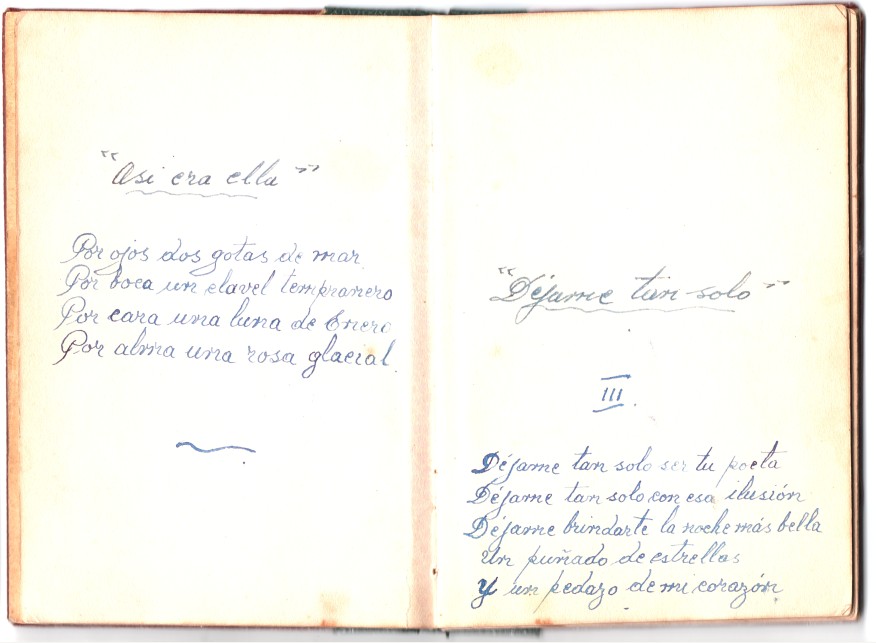 "Asi era ella"
Por ojos dos gotas de mar
Por boca un clavel tempranero
Por cara una luna de Enero
Por alma una rosa glacial.
"Déjame tan solo"
III.
Déjame tan solo ser tu poeta
Déjame tan solo con esa ilusión
Déjame brindarte la noche más bella
un puñado de estrellas
y un pedazo de mi corazón.